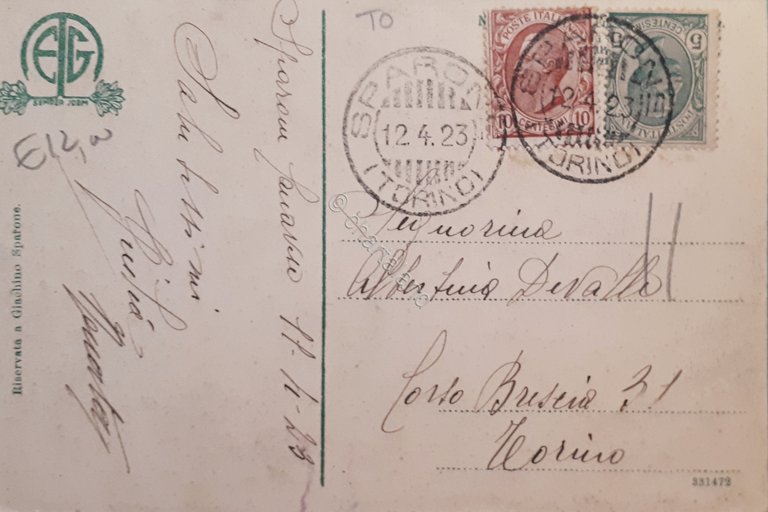 EG
SEMPER IDEM
TO
E12,00
Riservata a Giachino Sparone.
Sparone Canavese 11-4-23
Salutissimi
Giulia
POSTE ITALIANE
10 CENTESIMI 10
5
CENTESIMI
POSTE ITALIANE
SPARONE
12.4.23
(TORINO)
SPARONE
12.4.23
(TORINO)
Signorina
Albertina Devalle
Corso Brescia 31
Torino
331472